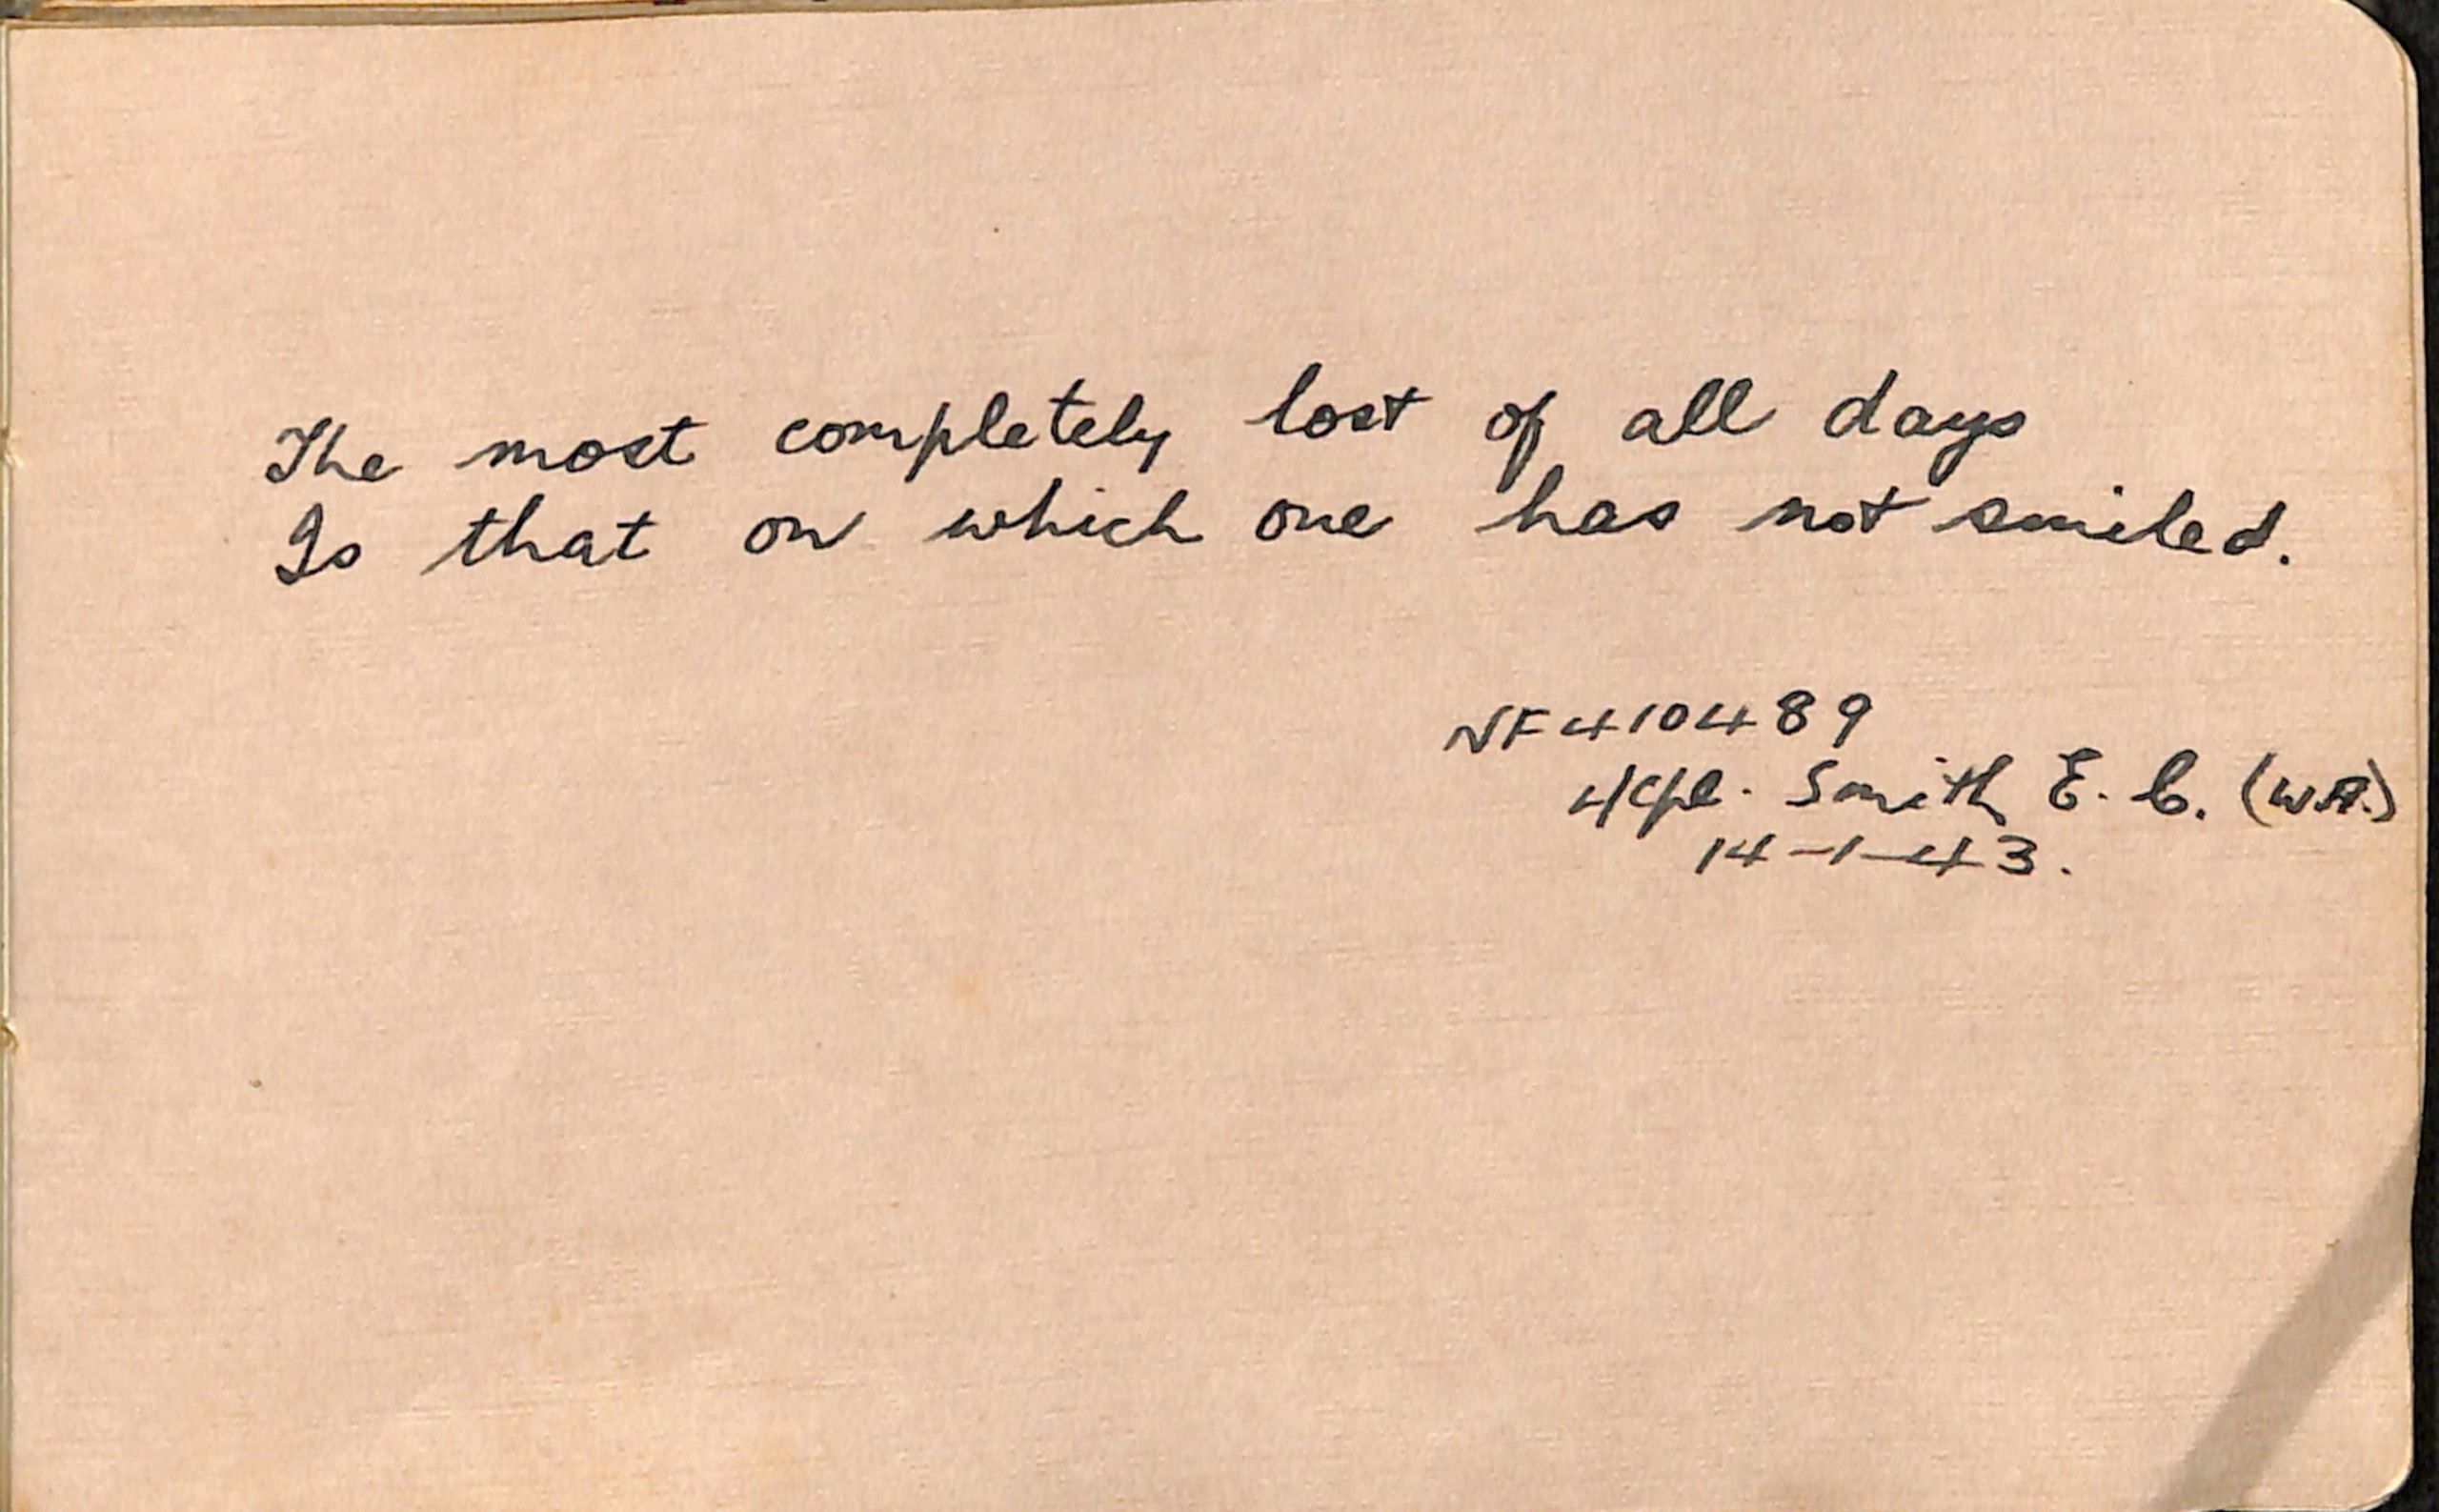 The most completely lost of all days
Is that on which one has not smiled.
NF410489
L/Cpl. Smith E. C. (W.A.)
14-1-43.